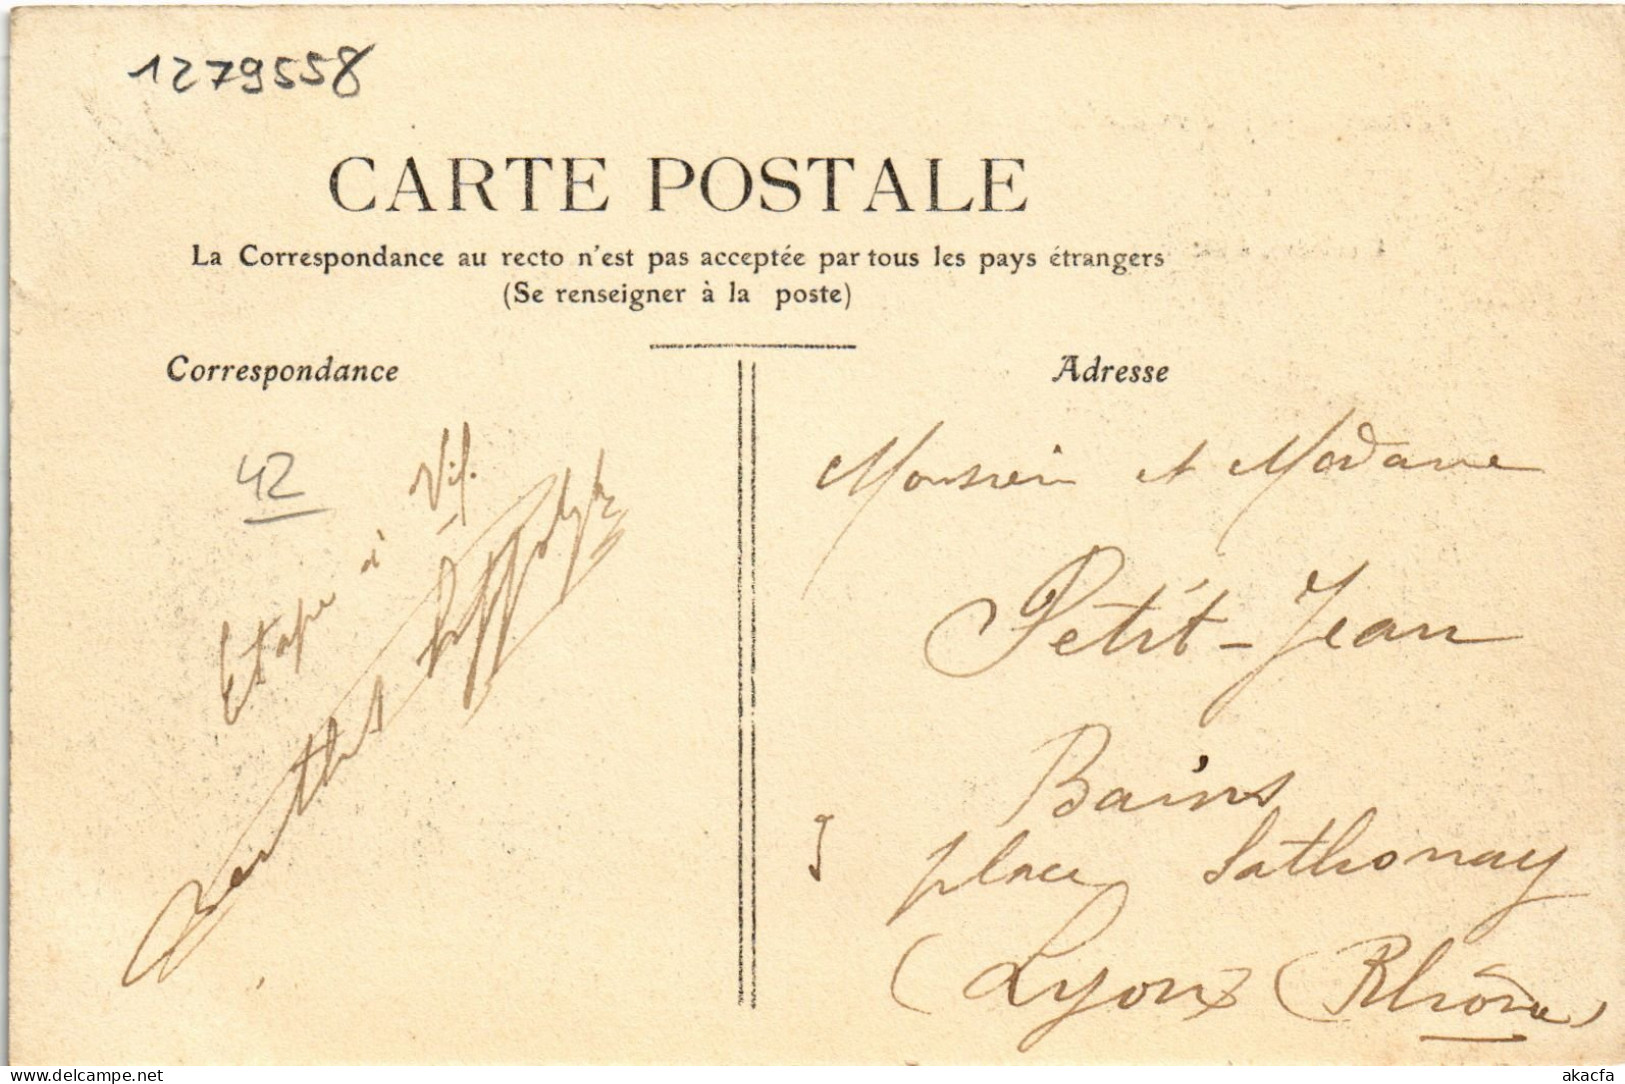 1279558
CARTE POSTALE
La Correspondance au recto n'est pas acceptée par tous les pays étrangers
(Se renseigner à la poste)
Correspondance
Adresse
42
Etape à Vif.
Monsieur et Madame
Petit-Jean
Bains
9 place Sathonay
Lyon (Rhône)
www.delcampe.net
akacfa